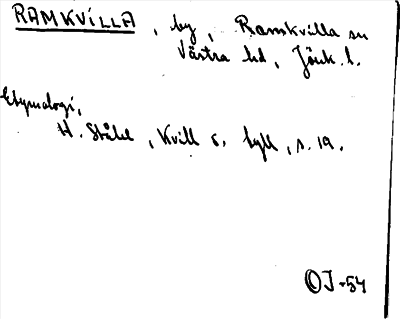 RAMKVILLA, by, Ramkvilla sn
Västra hd, Jönk. l.
Etymologi,
H. Ståhl, Kvill o. tyll, s. 19.
OJ-54